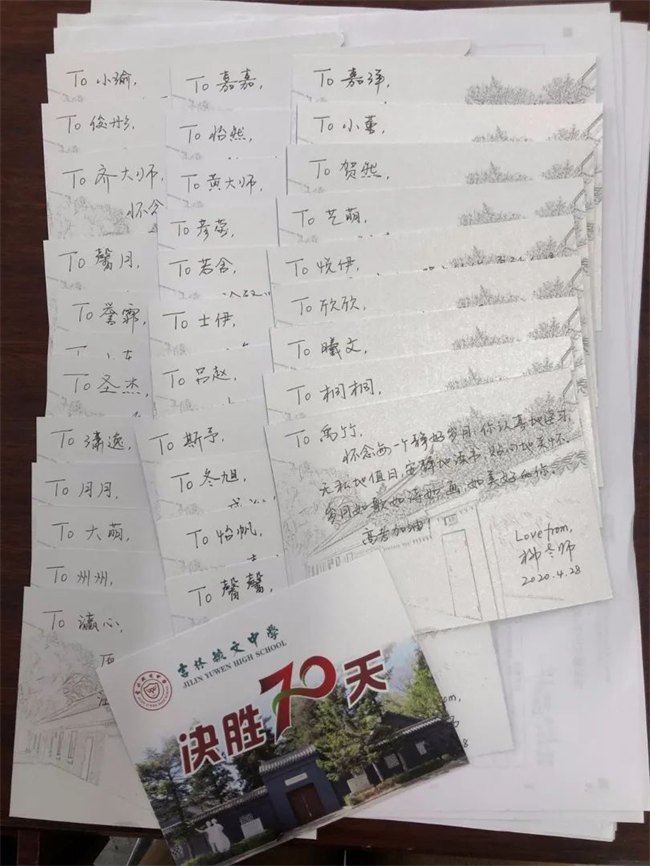 To 小瑜,
To 俊彤,
To 齐大师,
怀念
To 馨月,
To 誉霏,
To 圣杰,
To 潇逸,
To 月月,
To 大萌,
To 州州,
To 瀛心,
To 嘉嘉,
To 怡然,
To 黄大师,
To 彦蓉,
To 若含,
To 士伊,
To 吕赵,
To 斯予,
To 冬旭,
To 怡帆,
To 馨馨,
To 嘉洋,
To 小董,
To 贺然,
To 艺萌,
To 悦伊,
To 欣欣,
To 曦文,
To 桐桐,
To 禹竹,
怀念每一个静好岁月,你认真地学习,
无私地值日,安静地读书,
岁月如歌如诗如画,如美好的你。
高考加油!
Love from,
师
2020.4.28
吉林毓文中学
JILIN YUWEN HIGH SCHOOL
决胜70天